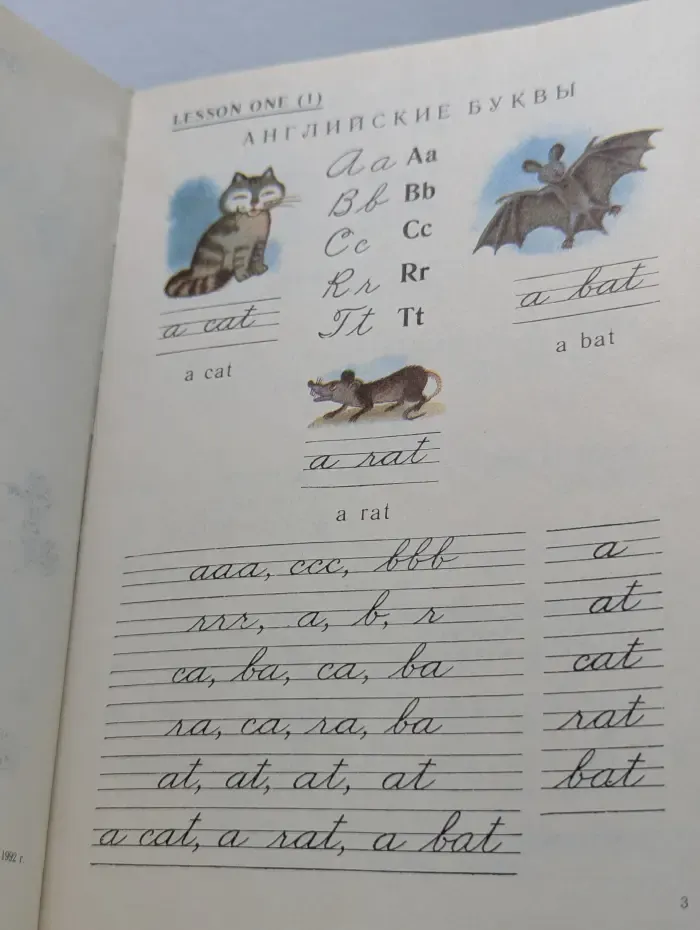 LESSON ONE (1)
АНГЛИЙСКИЕ БУКВЫ
Aa Aa
Bb Bb
Cc Cc
Rr Rr
Tt Tt
a cat
a cat
a bat
a bat
a rat
a rat
aaa, ccc, bbb
rrr, a, b, r
ca, ba, ca, ba
ra, ca, ra, ba
at, at, at, at
a cat, a rat, a bat
a
at
cat
rat
bat
1992 г.
3